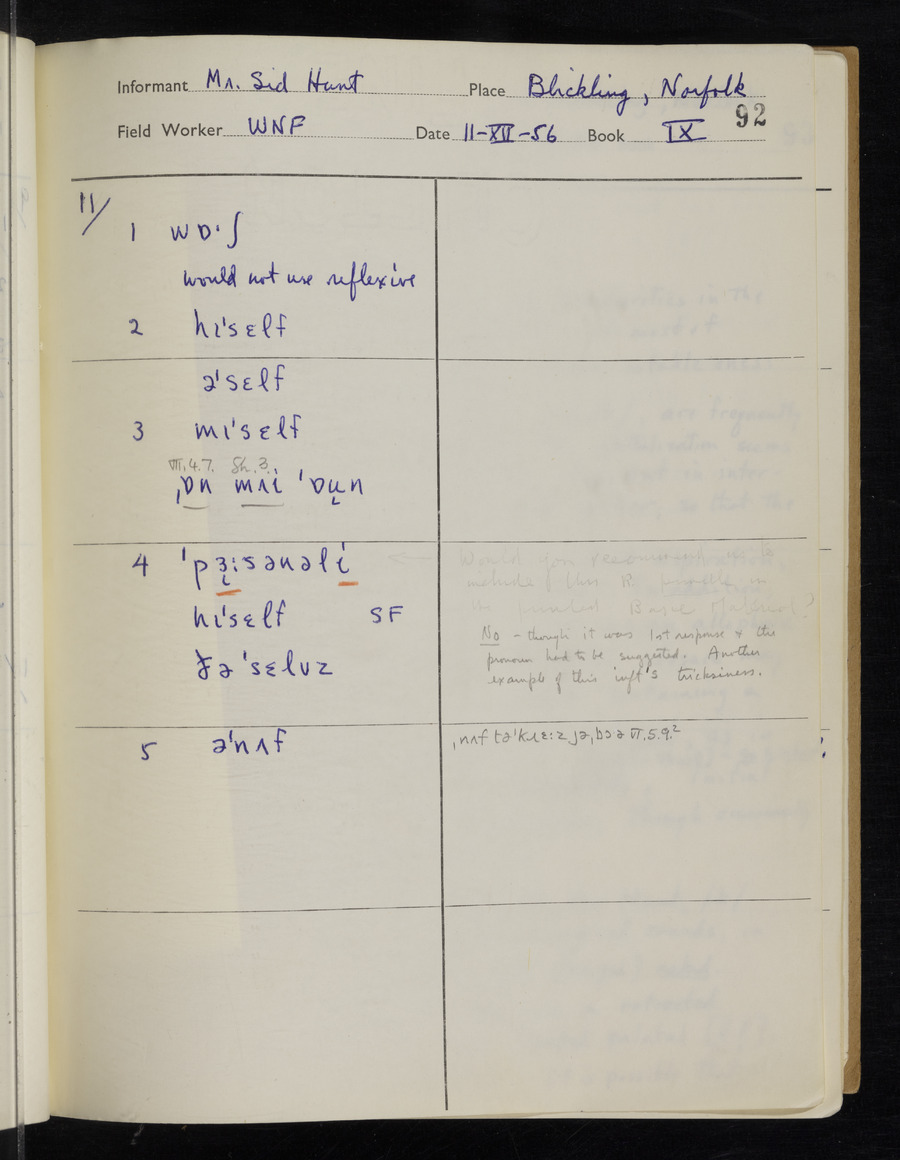 Informant Mr. Sid Hunt Place Blickling, Norfolk
92
Field Worker WNF Date 11-XII-56 Book IX
11/
1 wɒ·ʃ
would not use reflexive
2 hɩˈsɛlf
əˈsɛlf
3 mɩˈsɛlf
VII.4.7. Sh.3.
ˌɒn mʌi ˈɒu̜n
4 ˈpɜ̜ːsənəlɩ
Would you recommend us to
include this R. in
the printed Basic Material?
hɩˈsɛlf SF
No - though it was 1st response & the
pronoun had to be suggested. Another
example of this inft's tricksiness.
ðəˈsɛlvz
5 əˈnʌf
ˌnʌf təˈkɹɛːz jəˌbɔə VI.5.9.²